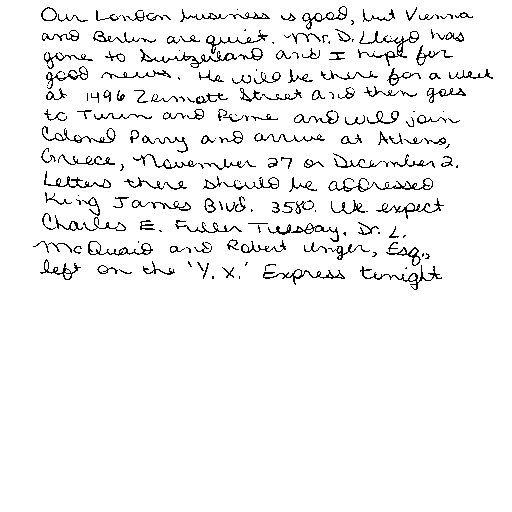 Our London business is good, but Vienna
and Berlin are quiet. Mr. D. Lloyd has
gone to Switzerland and I hope for
good news. He will be there for a week
at 1496 Zermott Street and then goes
to Turin and Rome and will join
Colonel Parry and arrive at Athens,
Greece, November 27 or December 2.
Letters there should be addressed
King James Blvd. 3580. We expect
Charles E. Fuller Tuesday. Dr. L.
McQuaid and Robert Unger, Esq.,
left on the 'Y. X.' Express tonight